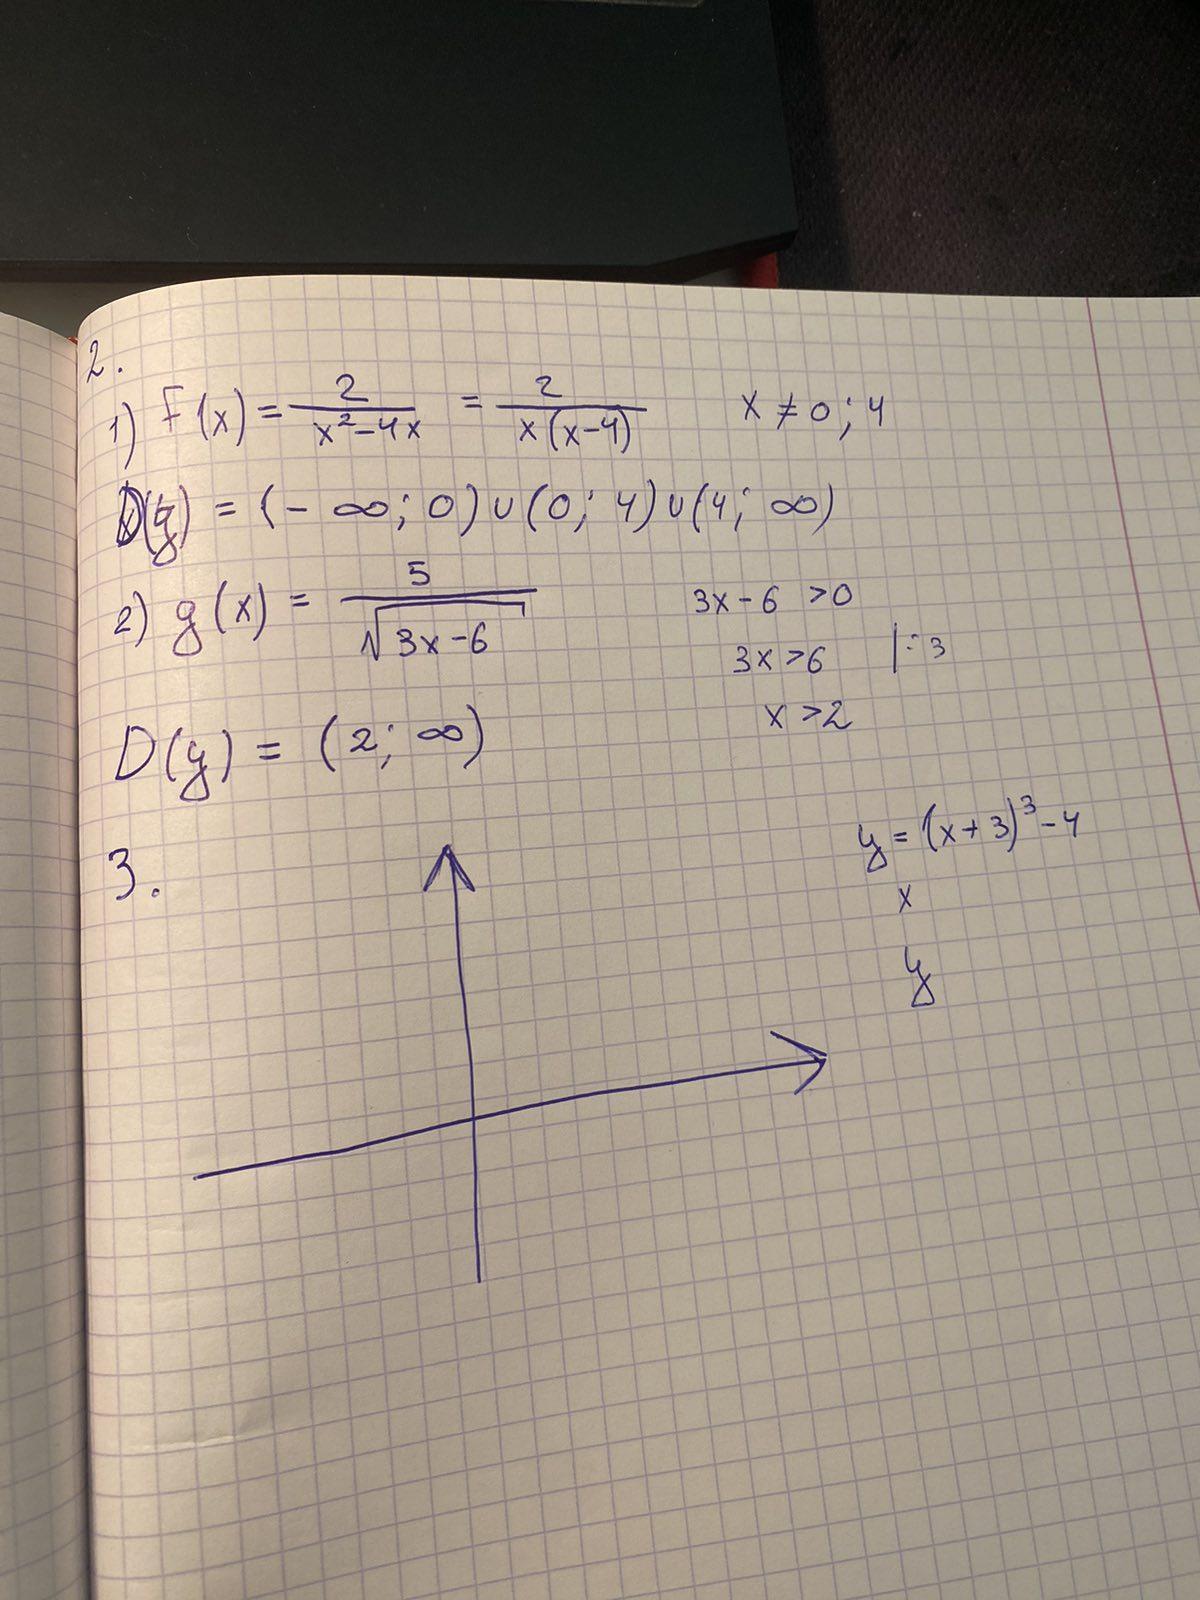 2.
1) F(x) = 2/(x²-4x) = 2/(x(x-4)) x ≠ 0; 4
D(y) = (-∞; 0)∪(0; 4)∪(4; ∞)
2) g(x) = 5/√(3x-6) 3x-6 >0
3x>6 |:3
x>2
D(y) = (2; ∞)
3. y = (x+3)³-4
x
y